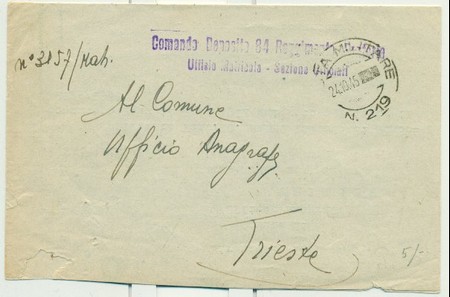 Comando Deposito 84 Reggimento
Ufficio Matricola - Sezione
n° 3157/Mat.
MILITARE
24.10.45
N. 219
Al Comune
Ufficio Anagrafe
Trieste
5/-